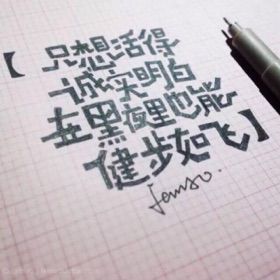 【只想活得
诚实明白
在黑夜里也能
健步如飞】